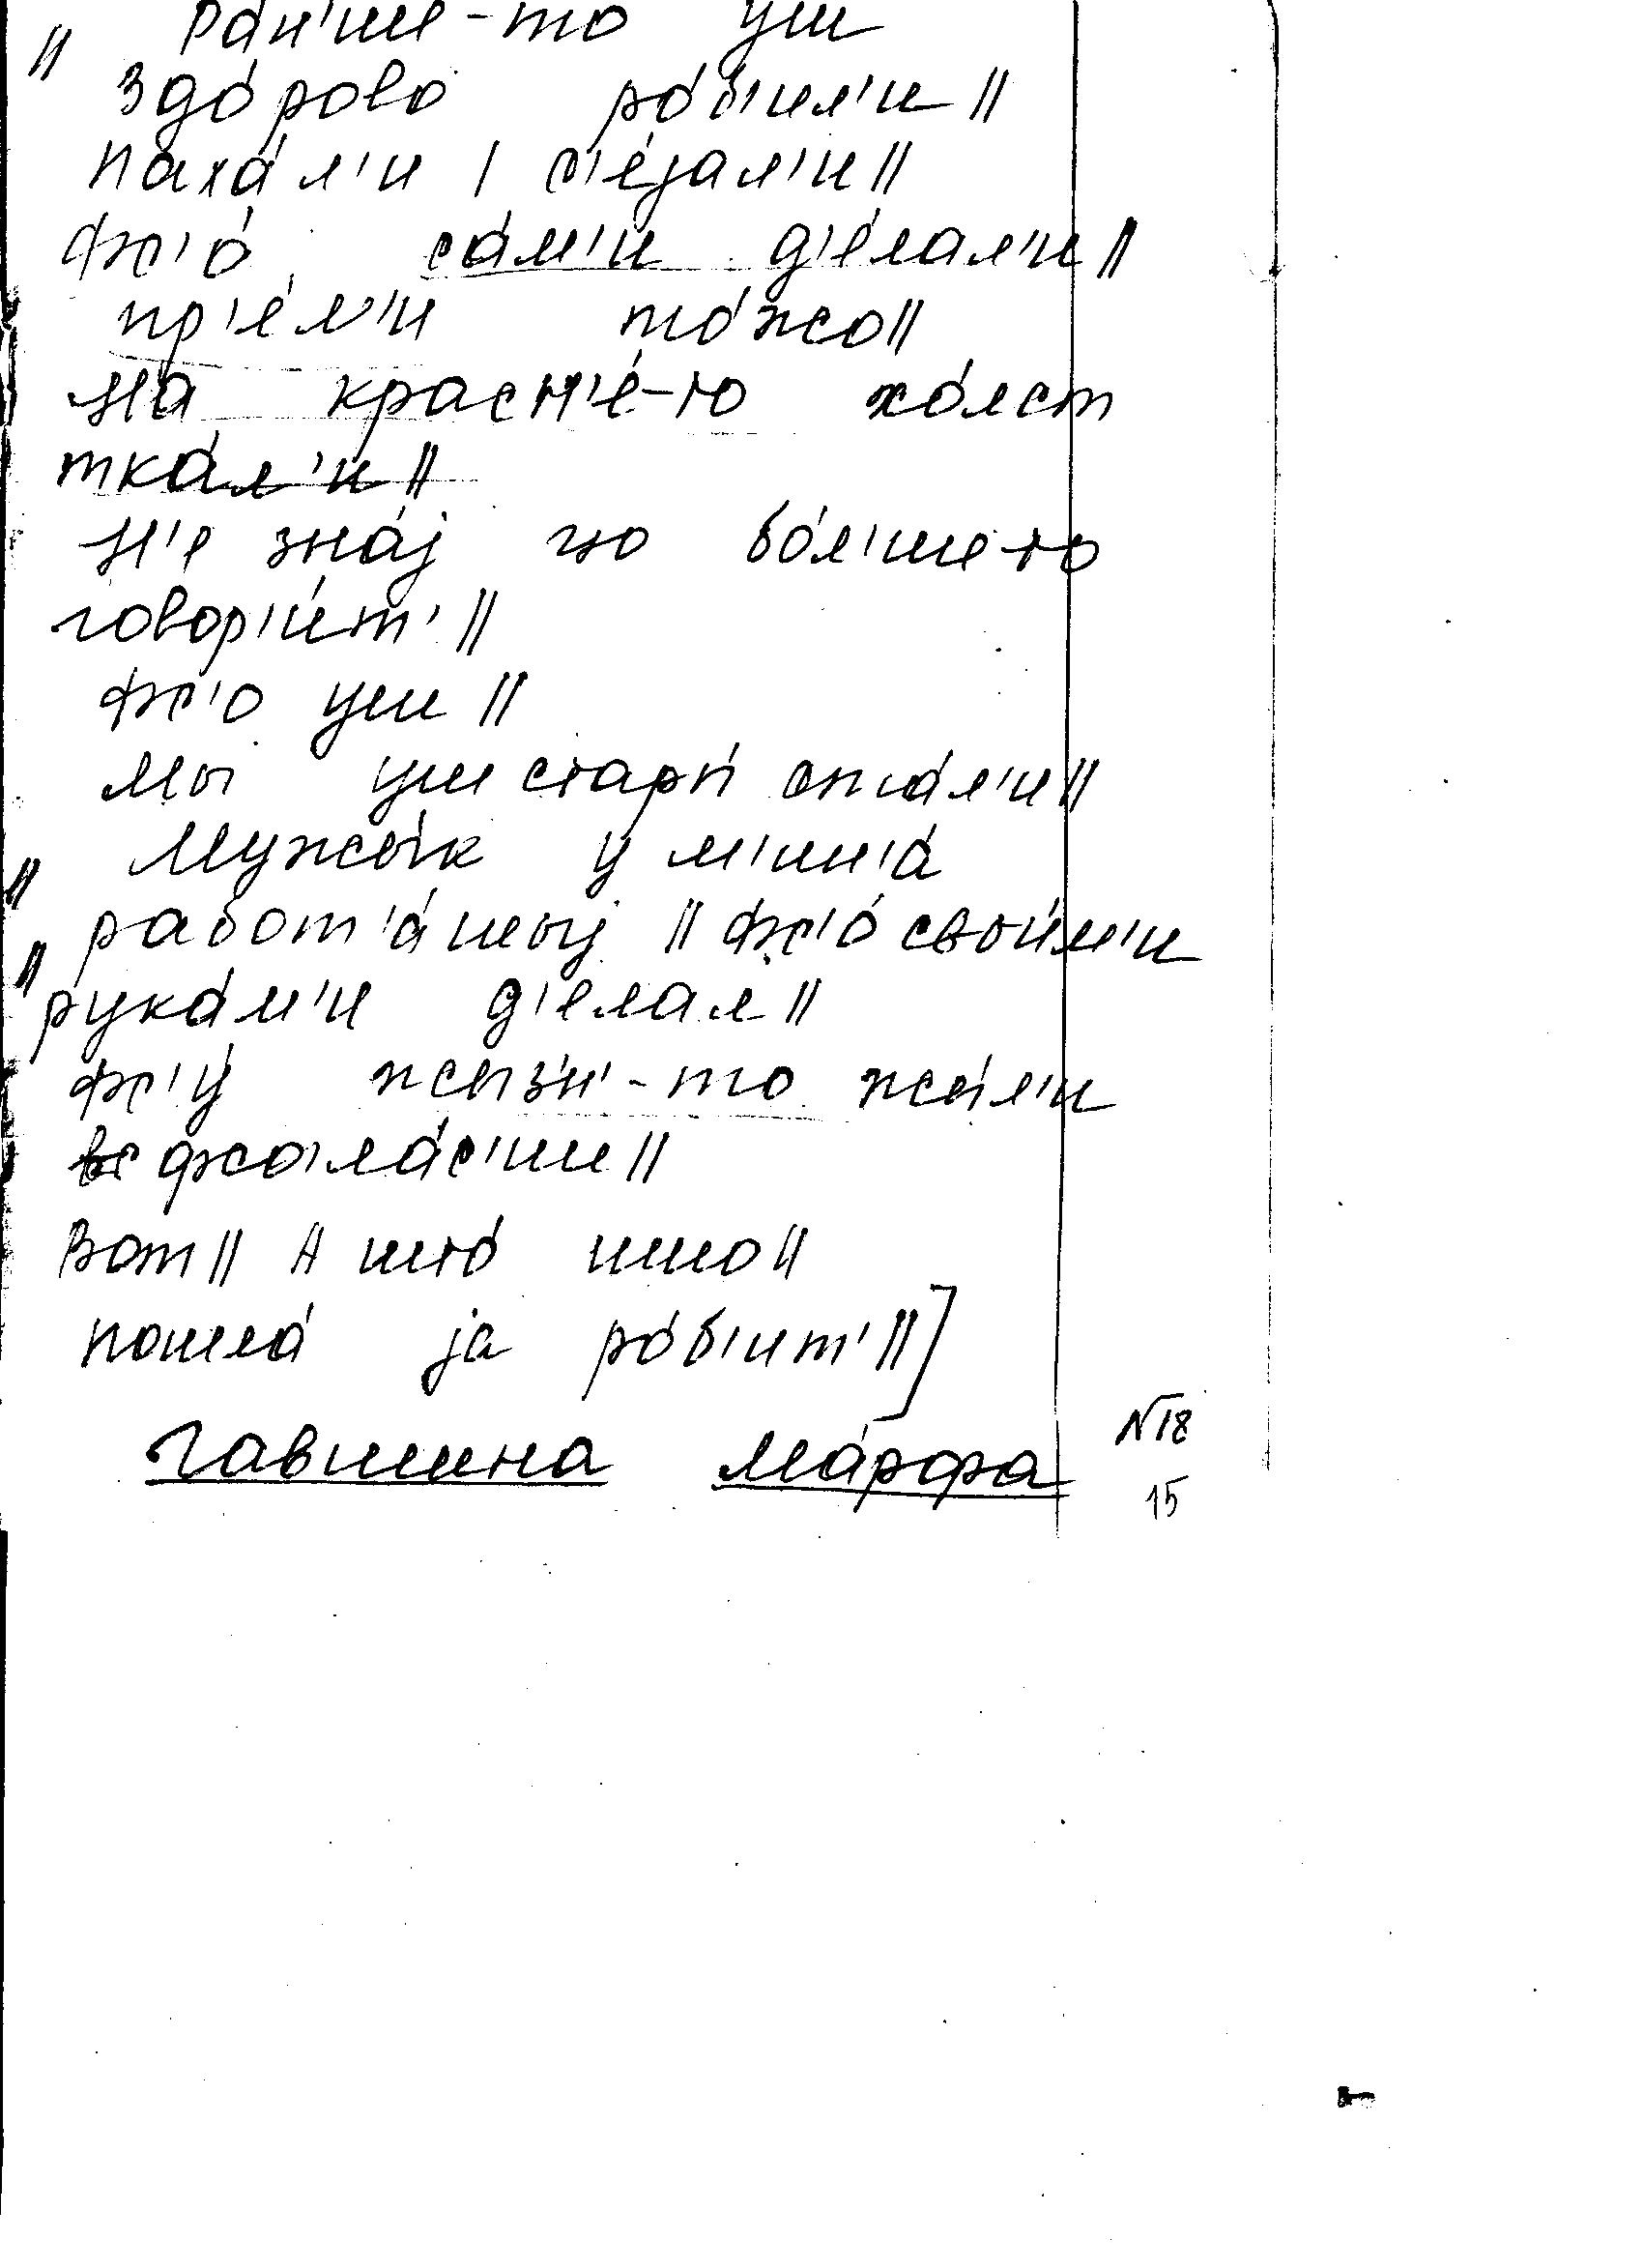 " ра́н'ше-то уш
здо́рово ро́б'ил'и ||
паха́л'и | с'е́јал'и ||
фс'о́ са́м'и д'е́лал'и ||
пр'е́л'и то́жо ||
на красн'е́-то хо́лст
тка́л'и ||
н'е зна́ј цо бо́л'ше-то
говор'и́т' ||
фс'о уш ||
мы уш стары́ ста́л'и ||
" мужы́к у м'ин'а́
" работ'а́шшыј || фс'о́ свои́м'и
" рука́м'и д'елал ||
фс'у́ жы́з'н'-то жы́л'и
в согла́с'ии ||
вот || А што́ ишшо ||
пошла́ ја ро́б'ит' || ]
гавшина ма́рфа
№18
15